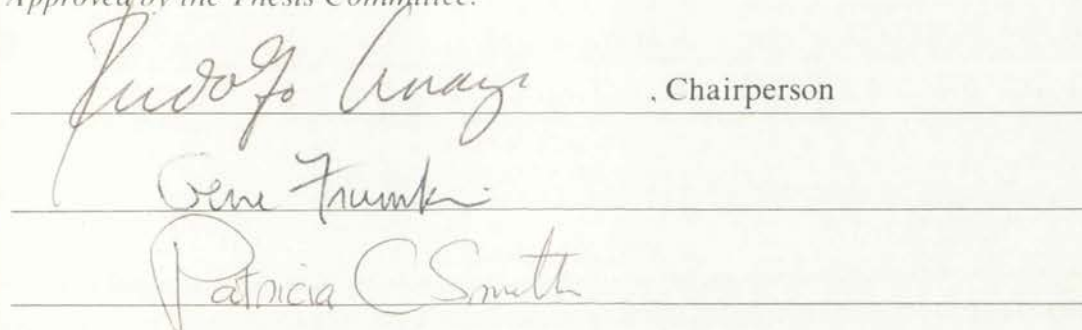 Approved by the Thesis Committee:
Rudolfo Anaya , Chairperson
Gene Frumkin
Patricia C Smith